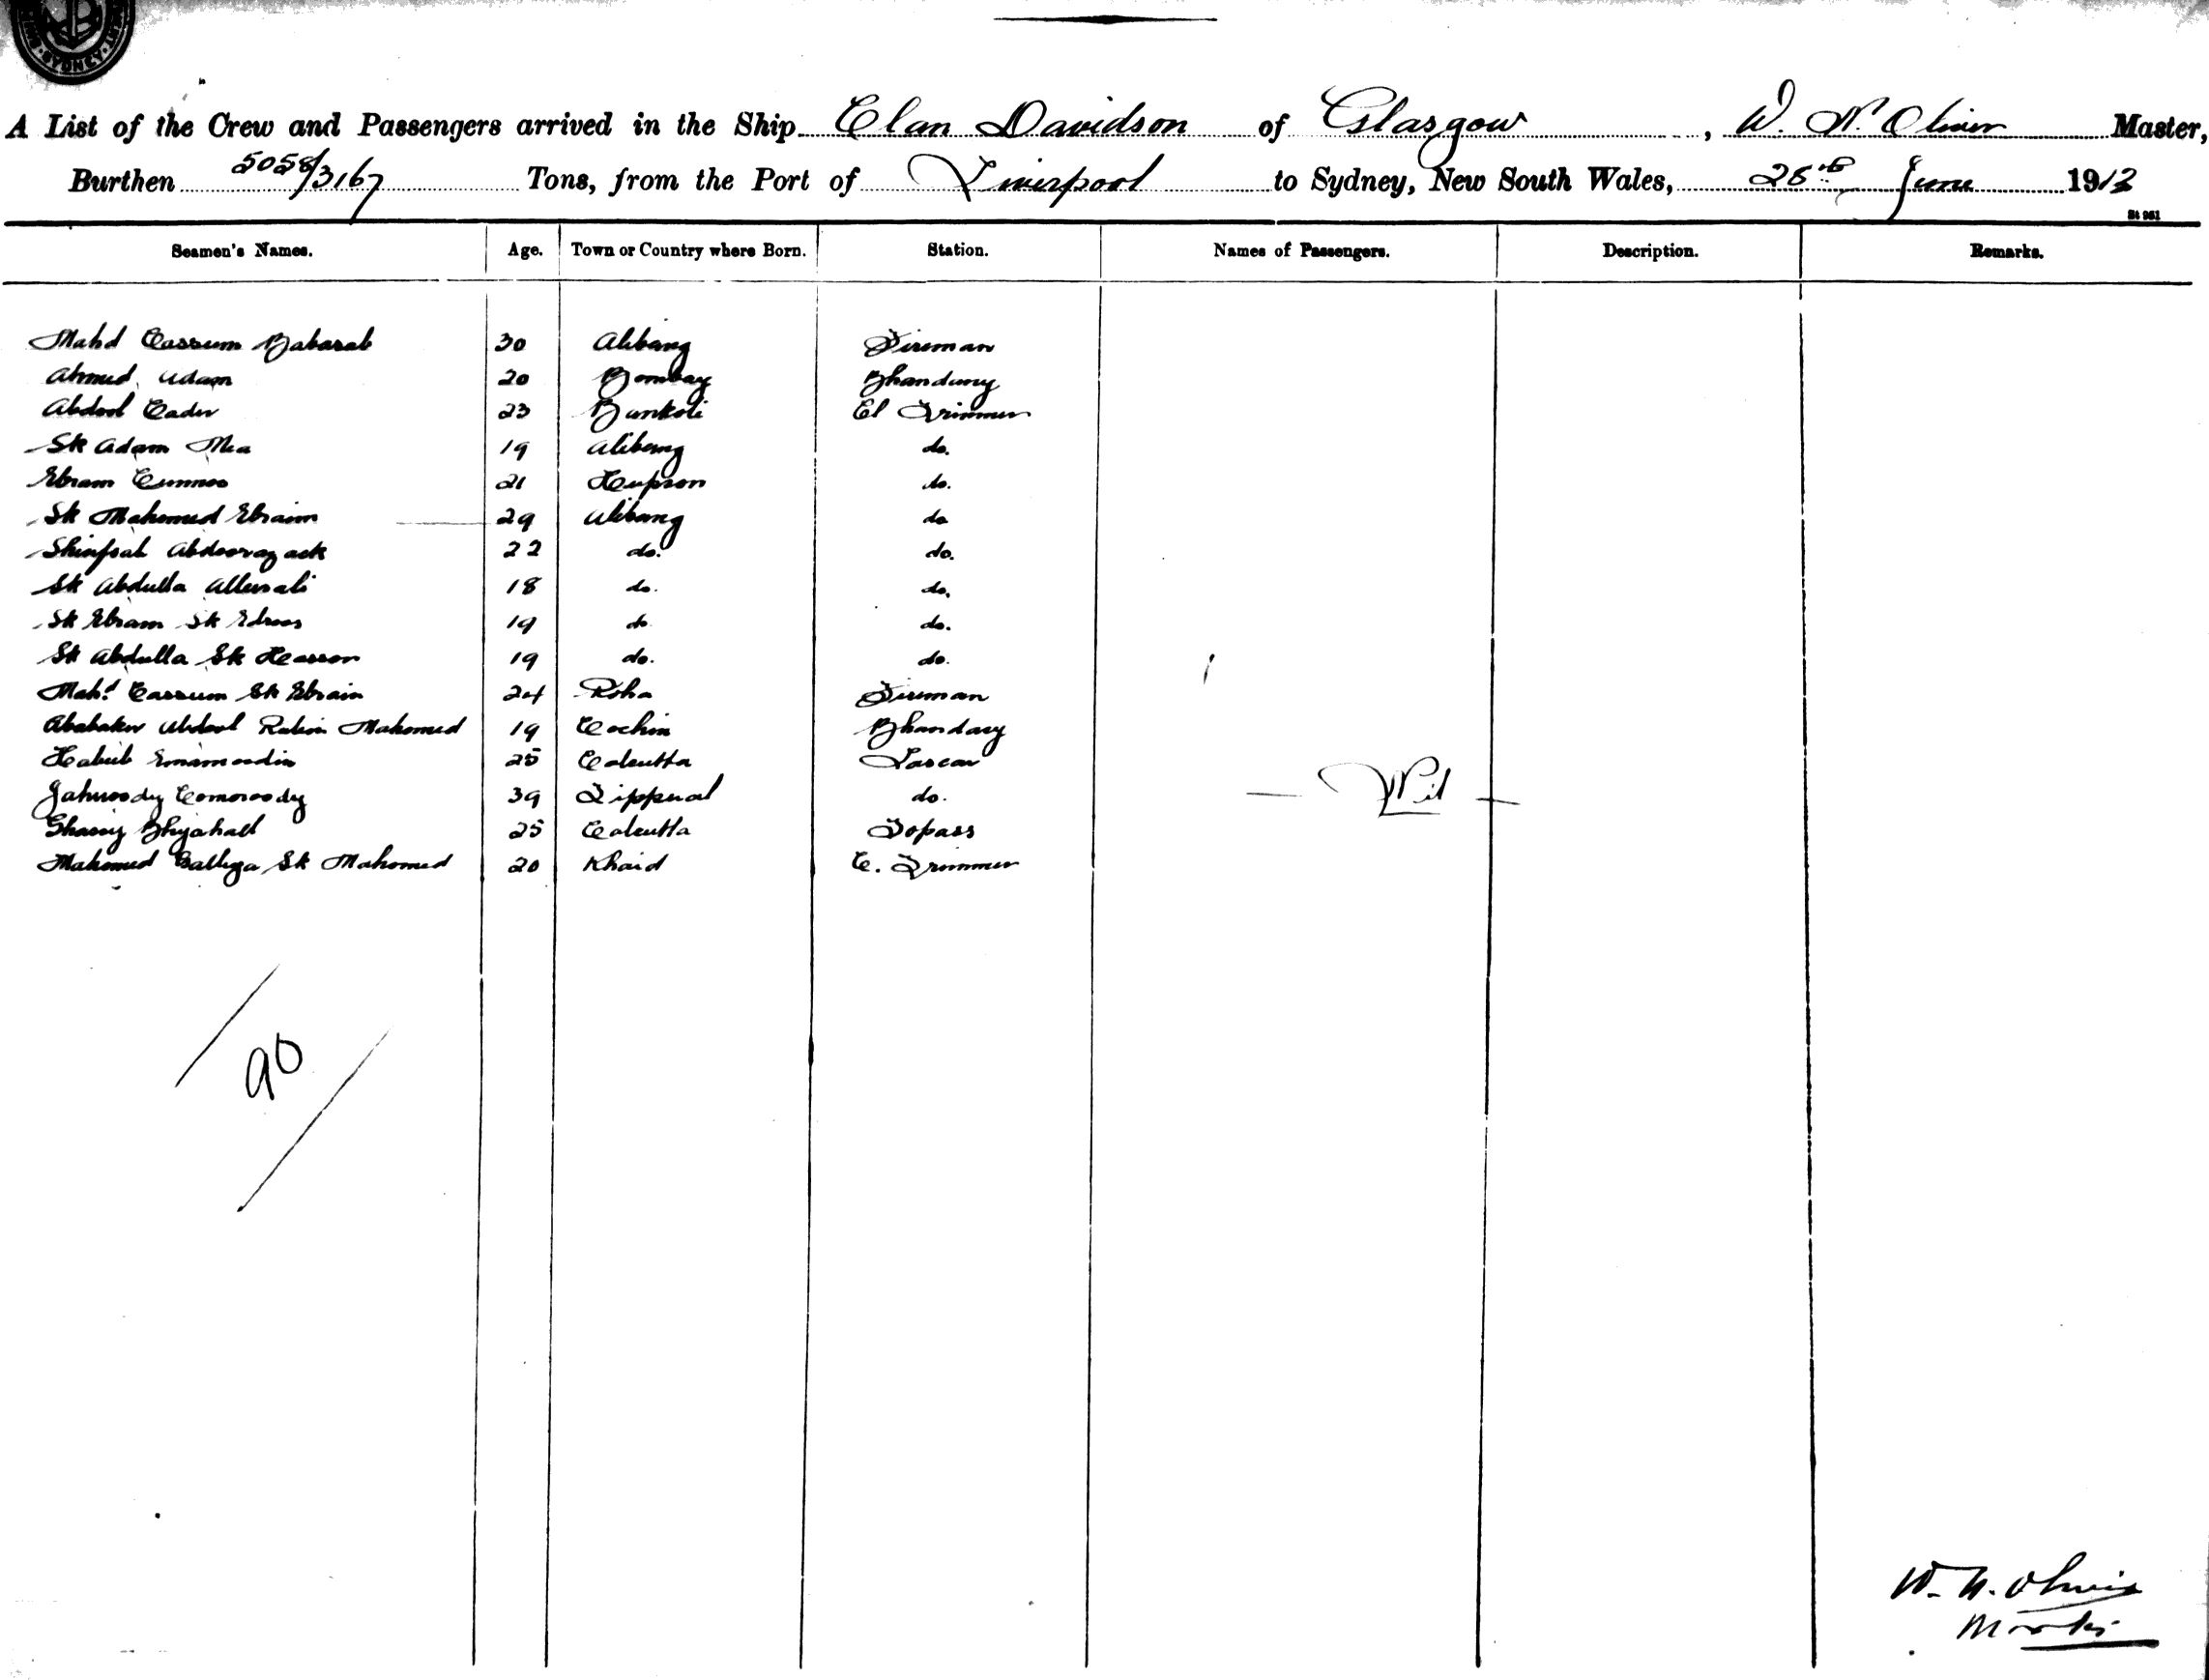 SYDNEY
A List of the Crew and Passengers arrived in the Ship Clan Davidson of Glasgow, W. N. Oliver Master,
Burthen 5058/3167 Tons, from the Port of Liverpool to Sydney, New South Wales, 28th June 1912
St 961
Seamen's Names. Age. Town or Country where Born. Station. Names of Passengers. Description. Remarks.
Mahd Cassum Babasab 30 Alibang Fireman
Ahmed Adam 20 Bombay Bhandary
Abdool Cader 23 Bankoti Cl Trimmer
Sk Adam Mea 19 Alibang do.
Ebram 21 do.
Sk Mahomed Ebraim 29 Alibang do
Abdoorazack 22 do. do.
Sk Abdulla 18 do. do.
Sk Ebram Sk Edroos 19 do do.
Sk Abdulla Sk Hasson 19 do. do.
Mahd Cassum Sk Ebraim 24 Roha Fireman
Ababaker Abdool Mahomed 19 Cochin Bhandary
Habib Emamoodin 25 Calcutta Lascar
39 Tipperal do.
25 Calcutta Topass
Mahomed Sk Mahomed 20 Khaid C. Trimmer
— Nil —
90
W. N. Oliver
Master